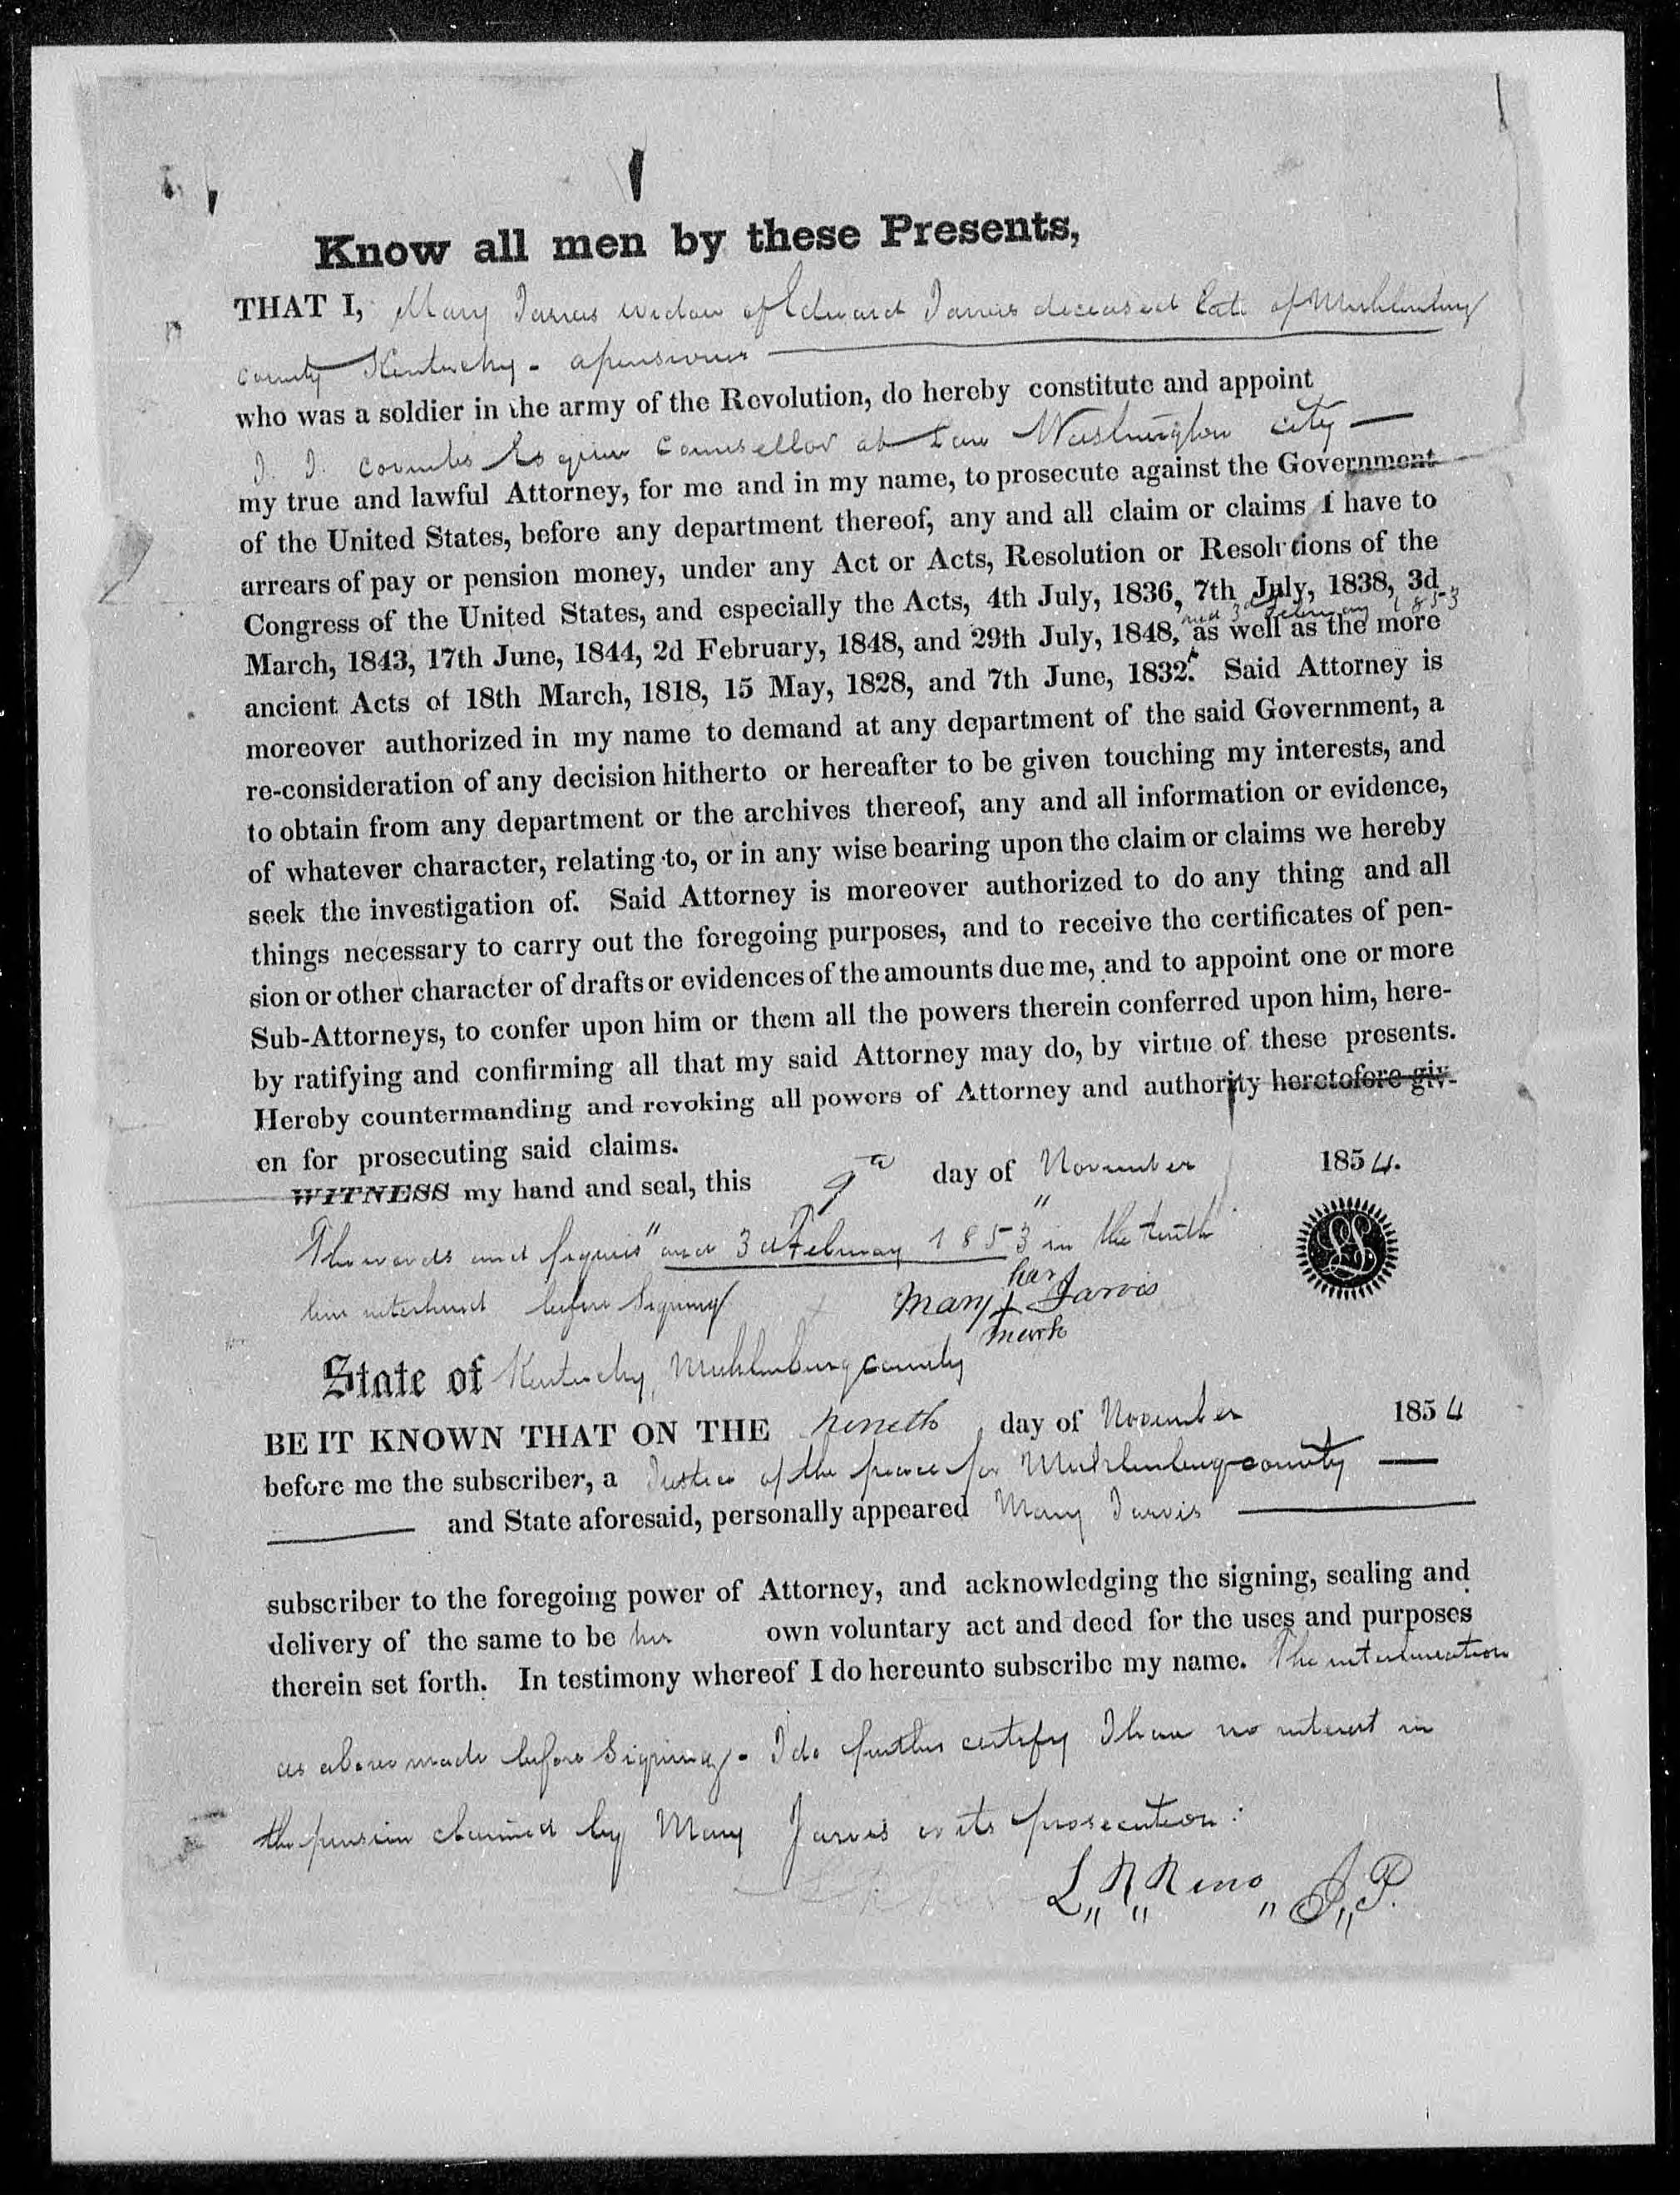 Know all men by these Presents,
THAT I, Mary Jarvis widow of Edward Jarvis deceased late of Muhlenburg
county Kentucky - a pensioner
who was a soldier in the army of the Revolution, do hereby constitute and appoint
J. J. Coombs Esquire Counsellor at Law Washington city
my true and lawful Attorney, for me and in my name, to prosecute against the Government
of the United States, before any department thereof, any and all claim or claims I have to
arrears of pay or pension money, under any Act or Acts, Resolution or Resolutions of the
Congress of the United States, and especially the Acts, 4th July, 1836, 7th July, 1838, 3d
and 3d February 1853
March, 1843, 17th June, 1844, 2d February, 1848, and 29th July, 1848, as well as the more
ancient Acts of 18th March, 1818, 15 May, 1828, and 7th June, 1832. Said Attorney is
moreover authorized in my name to demand at any department of the said Government, a
re-consideration of any decision hitherto or hereafter to be given touching my interests, and
to obtain from any department or the archives thereof, any and all information or evidence,
of whatever character, relating to, or in any wise bearing upon the claim or claims we hereby
seek the investigation of. Said Attorney is moreover authorized to do any thing and all
things necessary to carry out the foregoing purposes, and to receive the certificates of pen-
sion or other character of drafts or evidences of the amounts due me, and to appoint one or more
Sub-Attorneys, to confer upon him or them all the powers therein conferred upon him, here-
by ratifying and confirming all that my said Attorney may do, by virtue of these presents.
Hereby countermanding and revoking all powers of Attorney and authority heretofore giv-
en for prosecuting said claims.
WITNESS my hand and seal, this 9th day of November 1854.
The words and figures "and 3d February 1853" in the tenth
line interlined before signing
her
Mary + Jarvis
mark
LS
State of Kentucky, Muhlenburg county
BE IT KNOWN THAT ON THE nineth day of November 1854
before me the subscriber, a Justice of the peace for Muhlenburg county
and State aforesaid, personally appeared Mary Jarvis
subscriber to the foregoing power of Attorney, and acknowledging the signing, sealing and
delivery of the same to be her own voluntary act and deed for the uses and purposes
therein set forth. In testimony whereof I do hereunto subscribe my name. The interlineation
as above made before signing - I do further certify I have no interest in
the pension claimed by Mary Jarvis or its prosecution:
L,, R,, Reno,, J,, P.